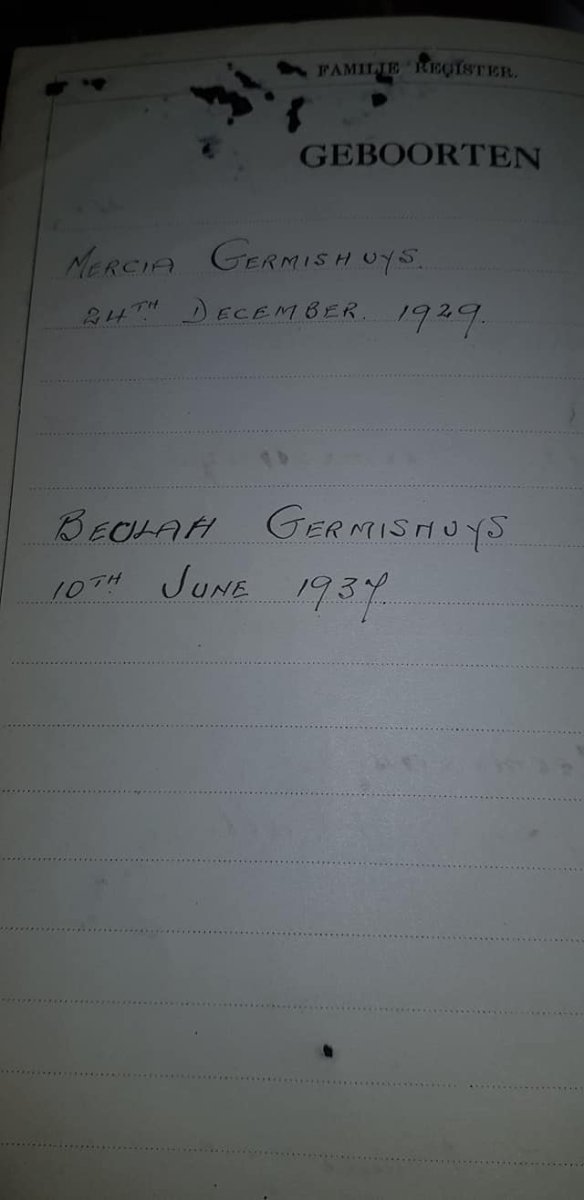 FAMILIE REGISTER.
GEBOORTEN
MERCIA GERMISHUYS.
24TH DECEMBER. 1929.
BEULAH GERMISHUYS
10TH JUNE 1937.